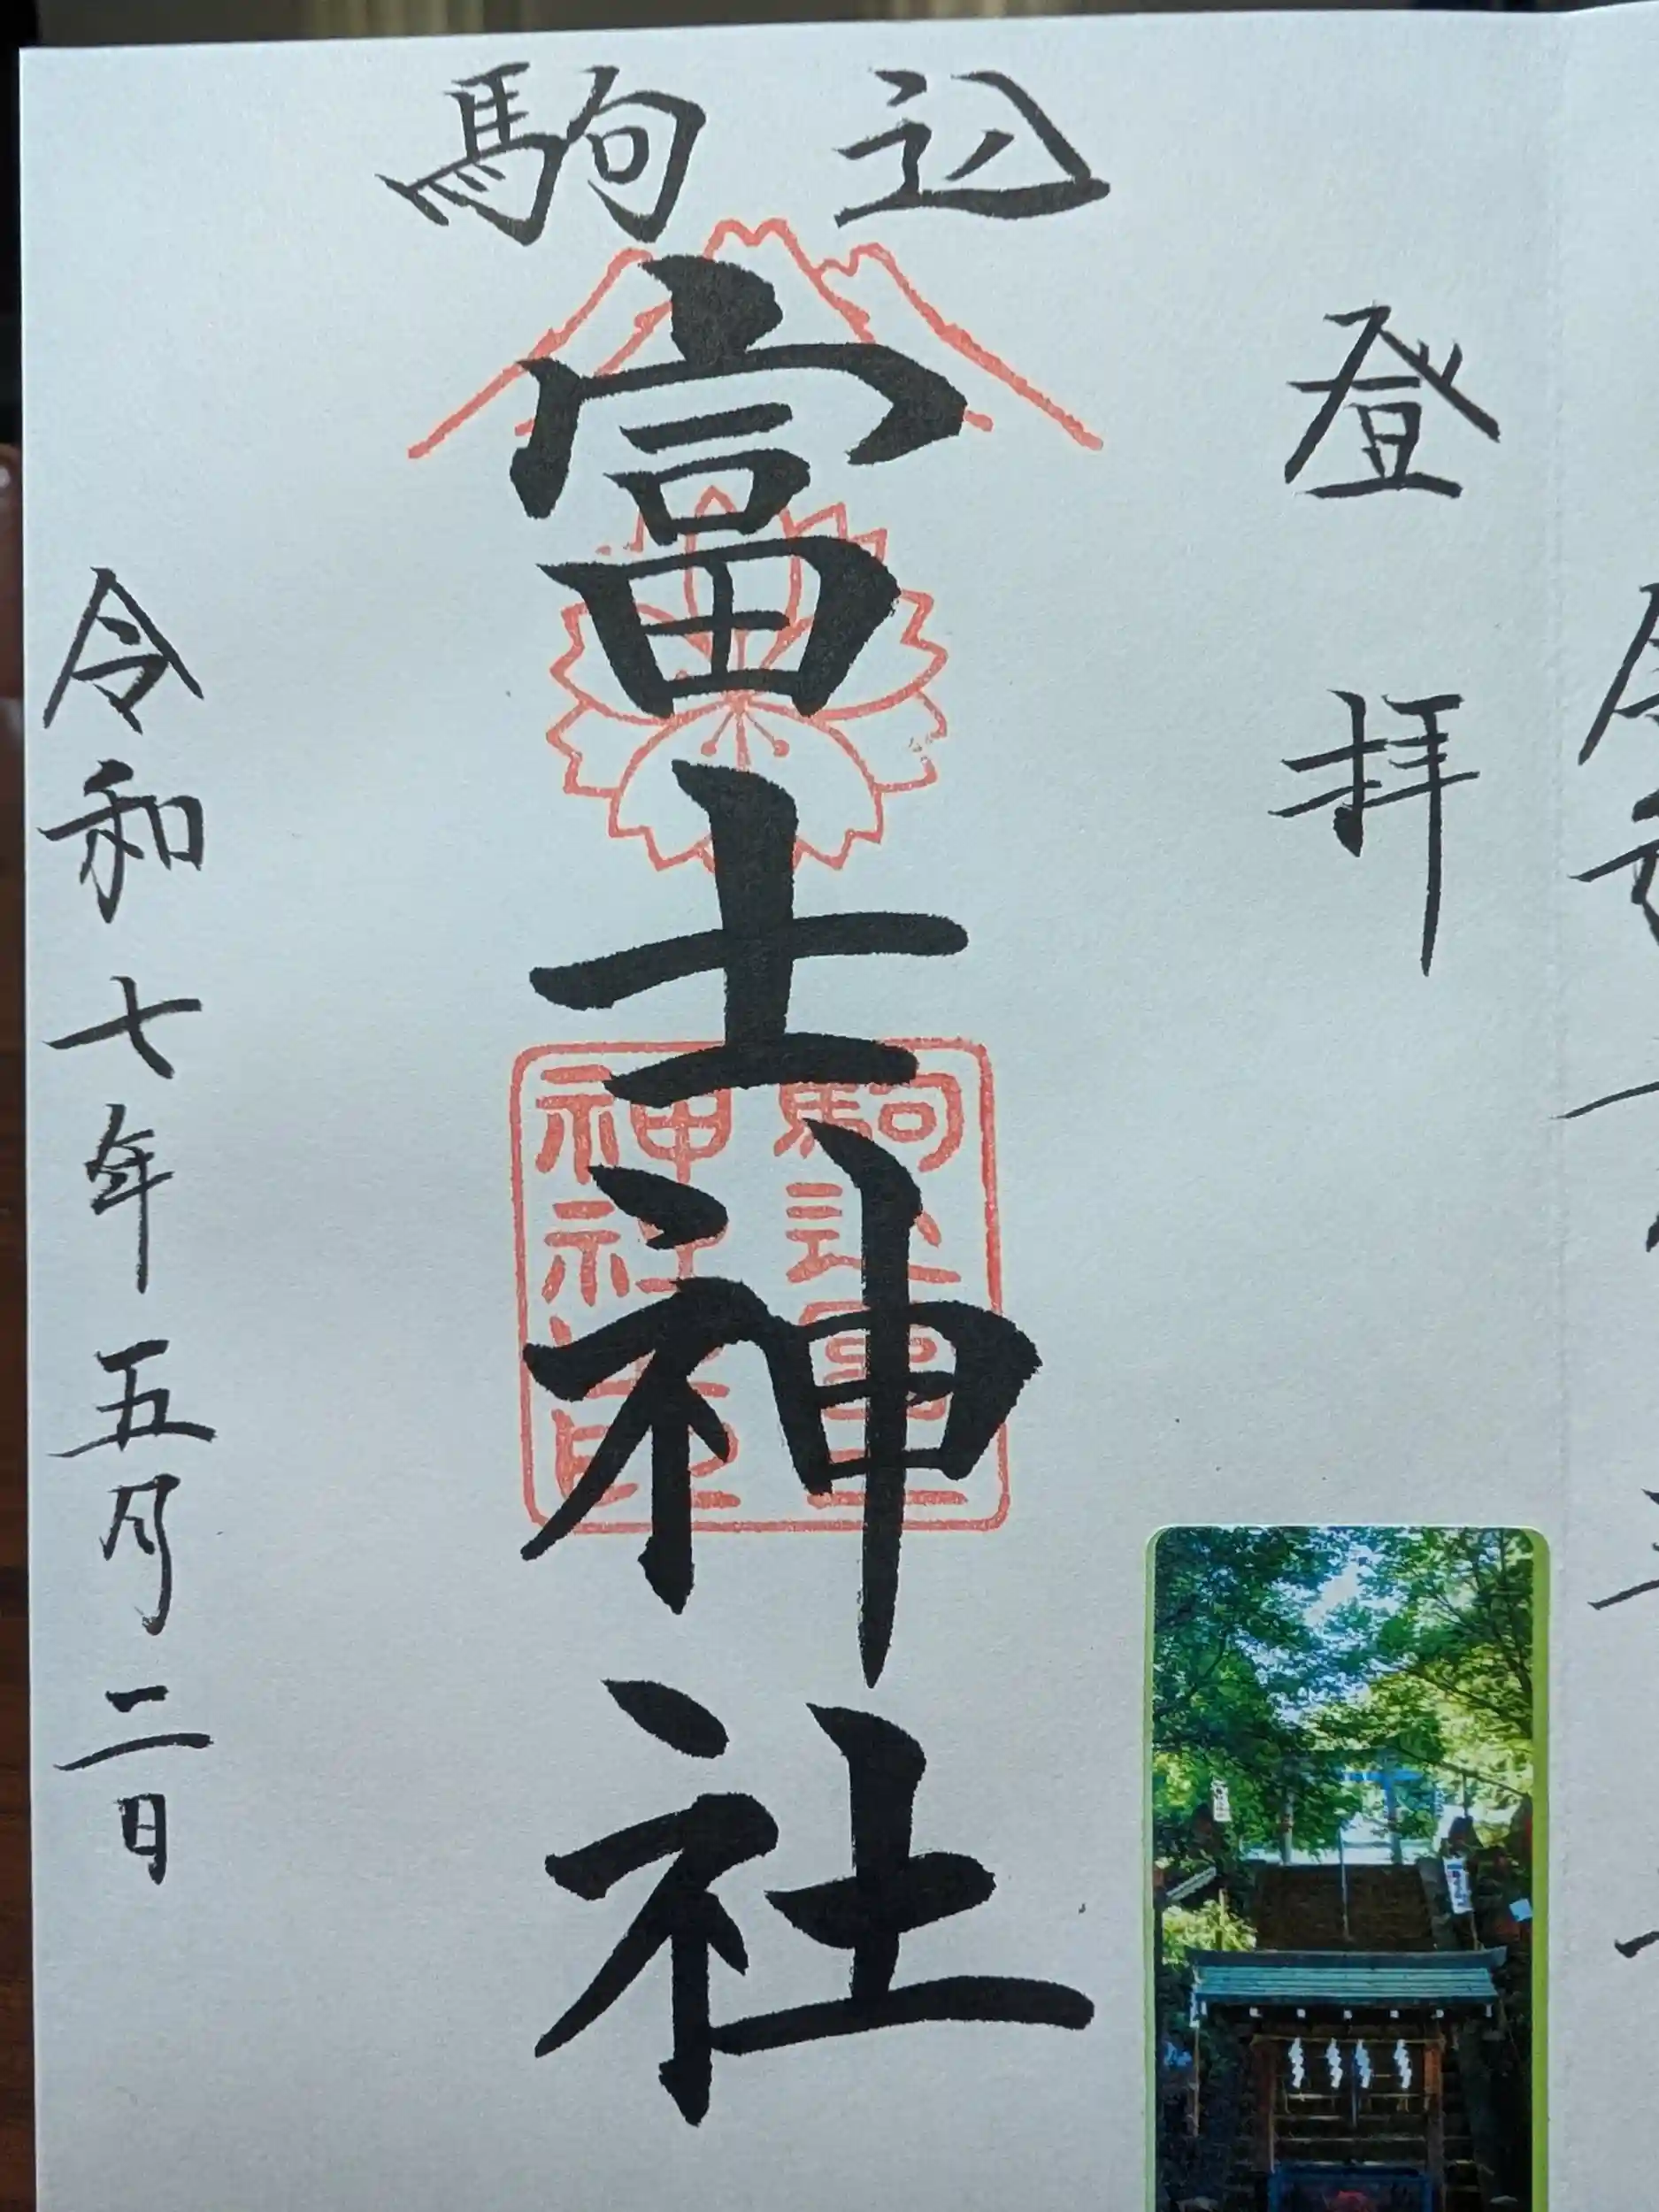 駒込
登拝
富士神社
駒込富士
神社之印
令和七年五月二日